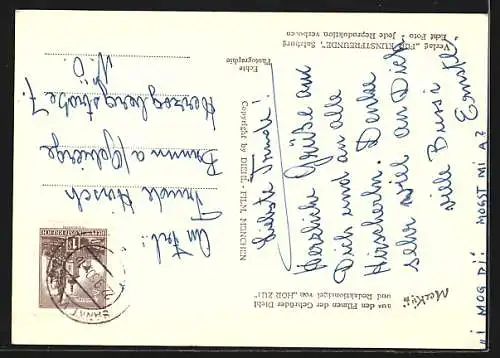 Mecki:
aus den Filmen der Gebrüder Diehl
und Redaktionsigel von „HÖR ZU!"
Liebste Trude!
Herzliche Grüße an
Dich und an alle
Hirscherln. Denke
sehr viel an Dich
viele Bussi
Ernstl.
"I MOG DI! MOGST MI A?
Echte
Photographie
Verlag „FÜR KUNSTFREUNDE", Salzburg
Echt Foto · Jede Reproduktion verboten
Copyright by DIEHL-FILM, MÜNCHEN
An Frl.:
Trude Hirsch
Brunn a/Gebirge
Herzogbergstraße 7.
N.Ö.